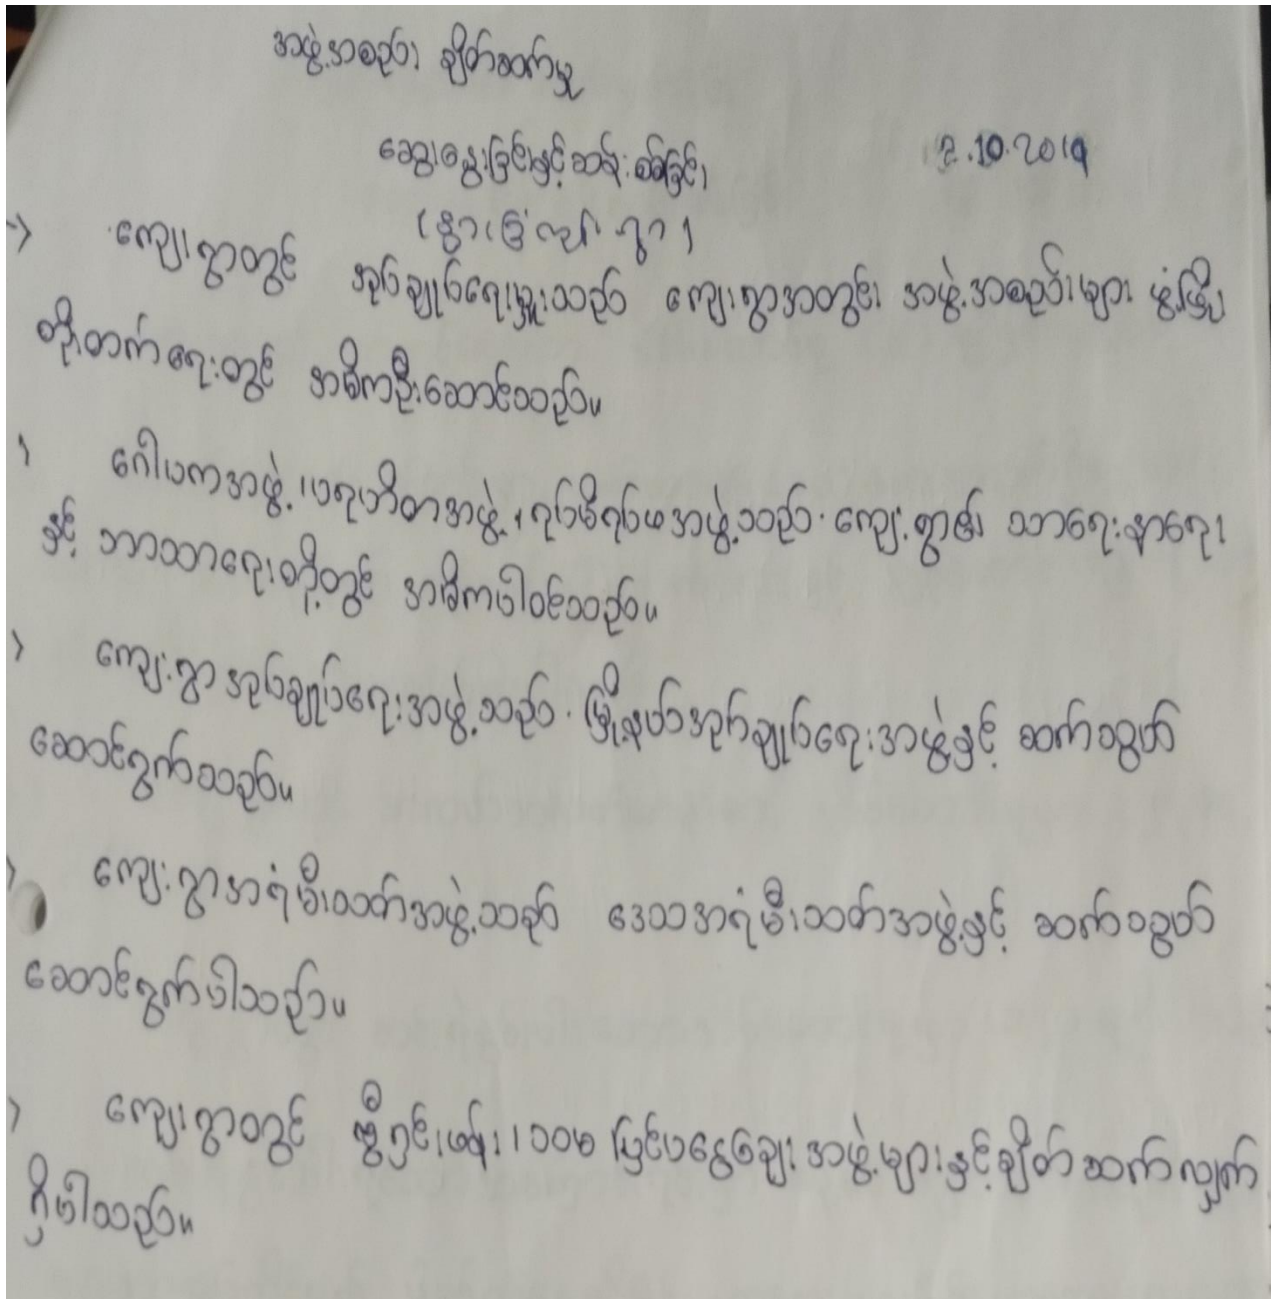 အဖွဲ့အစည်း ချိတ်ဆက်မှု
ဆွေးနွေးခြင်းနှင့်ဆန်းစစ်ခြင်း 2.10.2019
→ ကျေးရွာတွင် အုပ်ချုပ်ရေးမှူးသည် ကျေးရွာအတွင်း အဖွဲ့အစည်းများ ဖွံ့ဖြိုး
တိုးတက်ရေးတွင် အဓိကဦးဆောင်သည်။
ဂေါပကအဖွဲ့၊ပရဟိတအဖွဲ့၊ရပ်မိရပ်ဖအဖွဲ့သည် ကျေးရွာ၏ သာရေးနာရေး
နှင့် ဘာသာရေးတို့တွင် အဓိကပါဝင်သည်။
> ကျေးရွာအုပ်ချုပ်ရေးအဖွဲ့သည် မြို့နယ်အုပ်ချုပ်ရေးအဖွဲ့နှင့် ဆက်သွယ်
ဆောင်ရွက်သည်။
ကျေးရွာအရံမီးသတ်အဖွဲ့သည် ဒေသအရံမီးသတ်အဖွဲ့နှင့် ဆက်သွယ်
ဆောင်ရွက်ပါသည်။
> ကျေးရွာတွင် မြင်းပန်း၊ သသမ ပြင်ပငွေချေး အဖွဲ့များနှင့်ချိတ်ဆက်လျှက်
ရှိပါသည်။